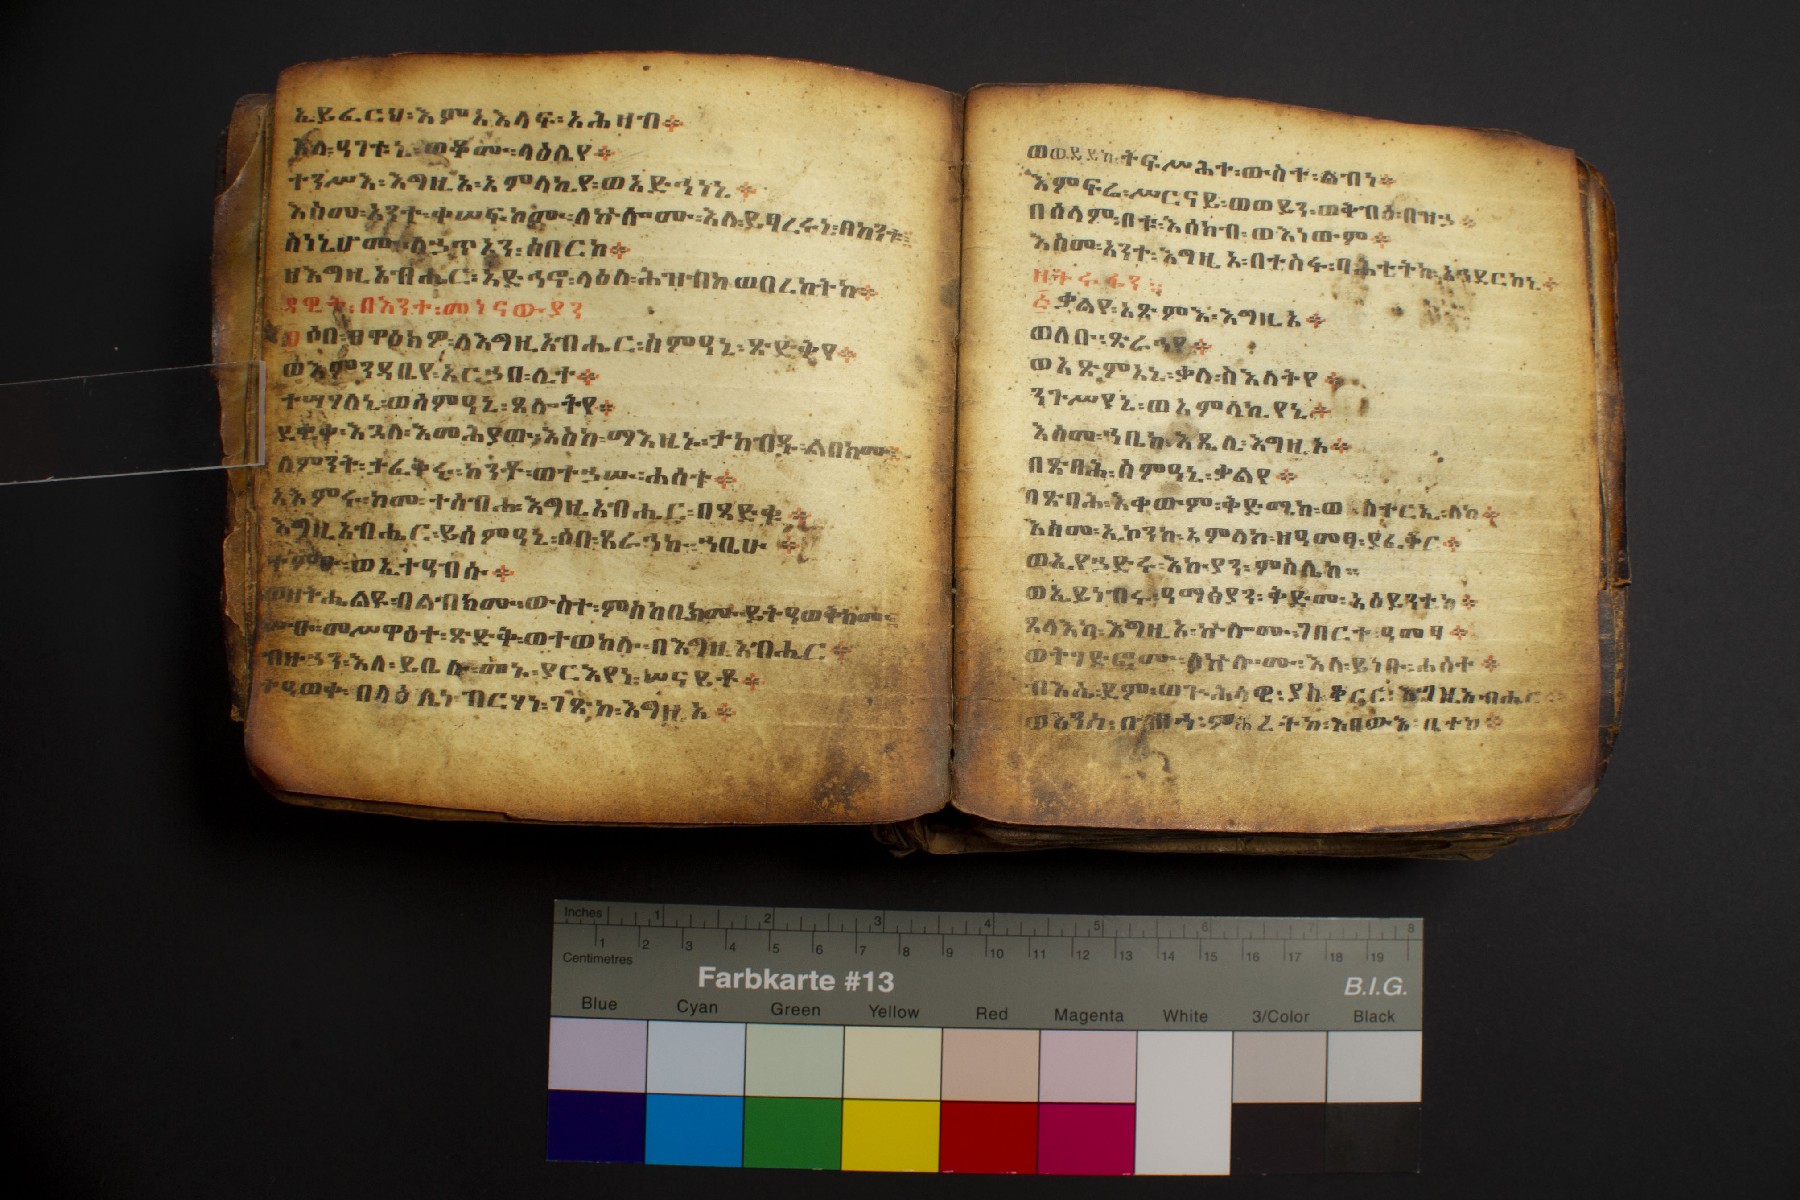 ኢይፈርህ፡እምአእላፍ፡አሕዛብ፨
እለ፡ዓገቱኒ፡ወቆሙ፡ላዕሌየ፨
ተንሥእ፡እግዚአ፡አምላኪየ፡ወአድኅነኒ፨
እስመ፡አንተ፡ቀሠፍኮሙ፡ለኵሎሙ፡እለ፡ይፃረሩነ፡በከንቱ፨
ስነኒሆሙ፡ለኃጥአን፡ሰበርከ፨
ዘእግዚአብሔር፡አድኅኖ፡ላዕለ፡ሕዝብከ፡ወበረከትከ፨
ዳዊት፡በእንተ፡መነናውያን
፬ሶበ፡ፀዋዕክዎ፡ለእግዚአብሔር፡ሰምዓኒ፡ጽድቅየ፨
ወእምንዳቤየ፡አርኃበ፡ሊተ፨
ተሣሃለኒ፡ወሰምዓኒ፡ጸሎትየ፨
ደቂቀ፡እጓለ፡እመሕያው፡እስከ፡ማእዜኑ፡ታከብዱ፡ልበክሙ፨
ለምንት፡ታፈቅሩ፡ከንቶ፡ወተኃሡ፡ሐሰተ፨
አእምሩ፡ከመ፡ተሰብሐ፡እግዚአብሔር፡በጻድቁ፨
እግዚአብሔር፡ይሰምዓኒ፡ሶበ፡ጸራኅኩ፡ኀቤሁ፨
ተምዑ፡ወኢተዓብሱ፨
ወዘትሔልዩ፡በልብክሙ፡ውስተ፡ምስካቢክሙ፡ይትዓወቅክሙ፨
ሡዑ፡መሥዋዕተ፡ጽድቅ፡ወተወከሉ፡በእግዚአብሔር፨
ብዙኃን፡እለ፡ይቤሉ፡መኑ፡ያርእየነ፡ሠናይቶ፨
ተዓውቀ፡በላዕሌነ፡ብርሃነ፡ገጽከ፡እግዚአ፨
ትፍሥሕተ፡ውስተ፡ልብነ፨
እምፍሬ፡ሥርናይ፡ወወይን፡ወቅብዕ፡በዝኃ፨
በሰላም፡በቱ፡እሰክብ፡ወእነውም፨
እስመ፡አንተ፡እግዚአ፡በተስፋ፡ባሕቲትከ፡አኅደርከኒ፨
፭ቃልየ፡አጽምእ፡እግዚአ፨
ወለቡ፡ጽራኅየ፨
ወአጽምአኒ፡ቃለ፡ስእለትየ፨
ንጉሥየኒ፡ወአምላኪየኒ፨
እስመ፡ኀቤከ፡እጼሊ፡እግዚአ፨
በጽባሕ፡ስምዓኒ፡ቃልየ፨
በጽባሕ፡እቀውም፡ቅድሜከ፡ወ ስተርኢ፡ለከ፨
እስመ፡ኢኮንከ፡አምላከ፡ዘዓመፃ፡ያፈቅር፨
ወኢየኃድሩ፡እኩያን፡ምስሌከ።
ወኢይነብሩ፡ዓማፅያን፡ቅድመ፡አዕይንቲከ፨
ጸላእከ፡እግዚአ፡ኵሎሙ፡ገበርተ፡ዓመፃ፨
ወትገድፎሙ፡ለኵሎሙ፡እለ፡ይነቡ፡ሐሰተ፨
ብእሴ፡ደም፡ወጕሕላዊ፡ያስቆርር፡እግዚአብሔር፨
ወአንሰ፡በብዝኀ፡ምሕረትከ፡እበውእ፡ቤተከ፨
Inches 1 2 3 4 5 6 7 8
1 2 3 4 5 6 7 8 9 10 11 12 13 14 15 16 17 18 19
Centimetres
Farbkarte #13 B.I.G.
Blue Cyan Green Yellow Red Magenta White 3/Color Black